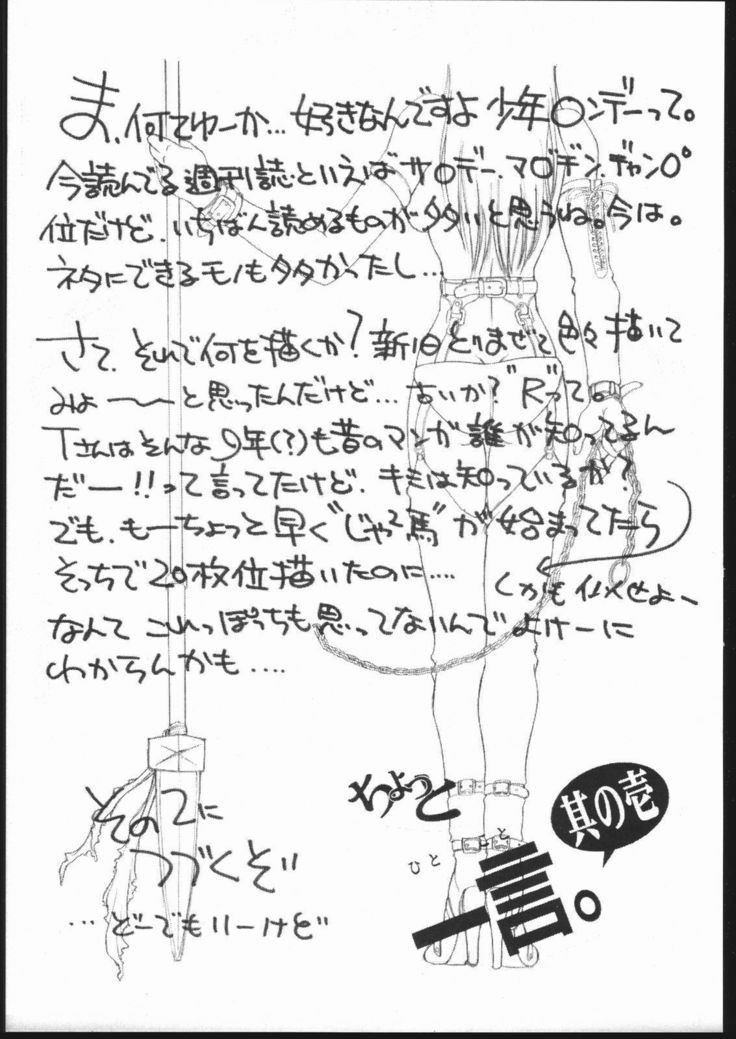 ま、何てゆーか…好きなんですよ 少年〇ンデーって。
今読んでる週刊誌といえばサ〇デー、マ〇ヂン、ヂャン〇゜
位だけど、いちばん読めるものが多いと思うね。今は。
ネタにできるモノも多かったし…
さて、それで何を描くか?新旧とりまぜて色々描いて
みよ〜〜と思ったんだけど…古いか?"R"って。
Tさんはそんな9年(?)も昔のマンガ誰が知ってるん
だー!!って言ってたけど、キミは知っているか?
でも、もーちょっと早く"じゃっ馬"が始まってたら
そっちで20枚位描いたのに…
しかも似せよー
なんて これっぽっちも思ってないんで よけーに
わからんかも….
その2に
つづくぞ
…どーでもいーけど
ちょっと
ひと こと
一言。
其の壱